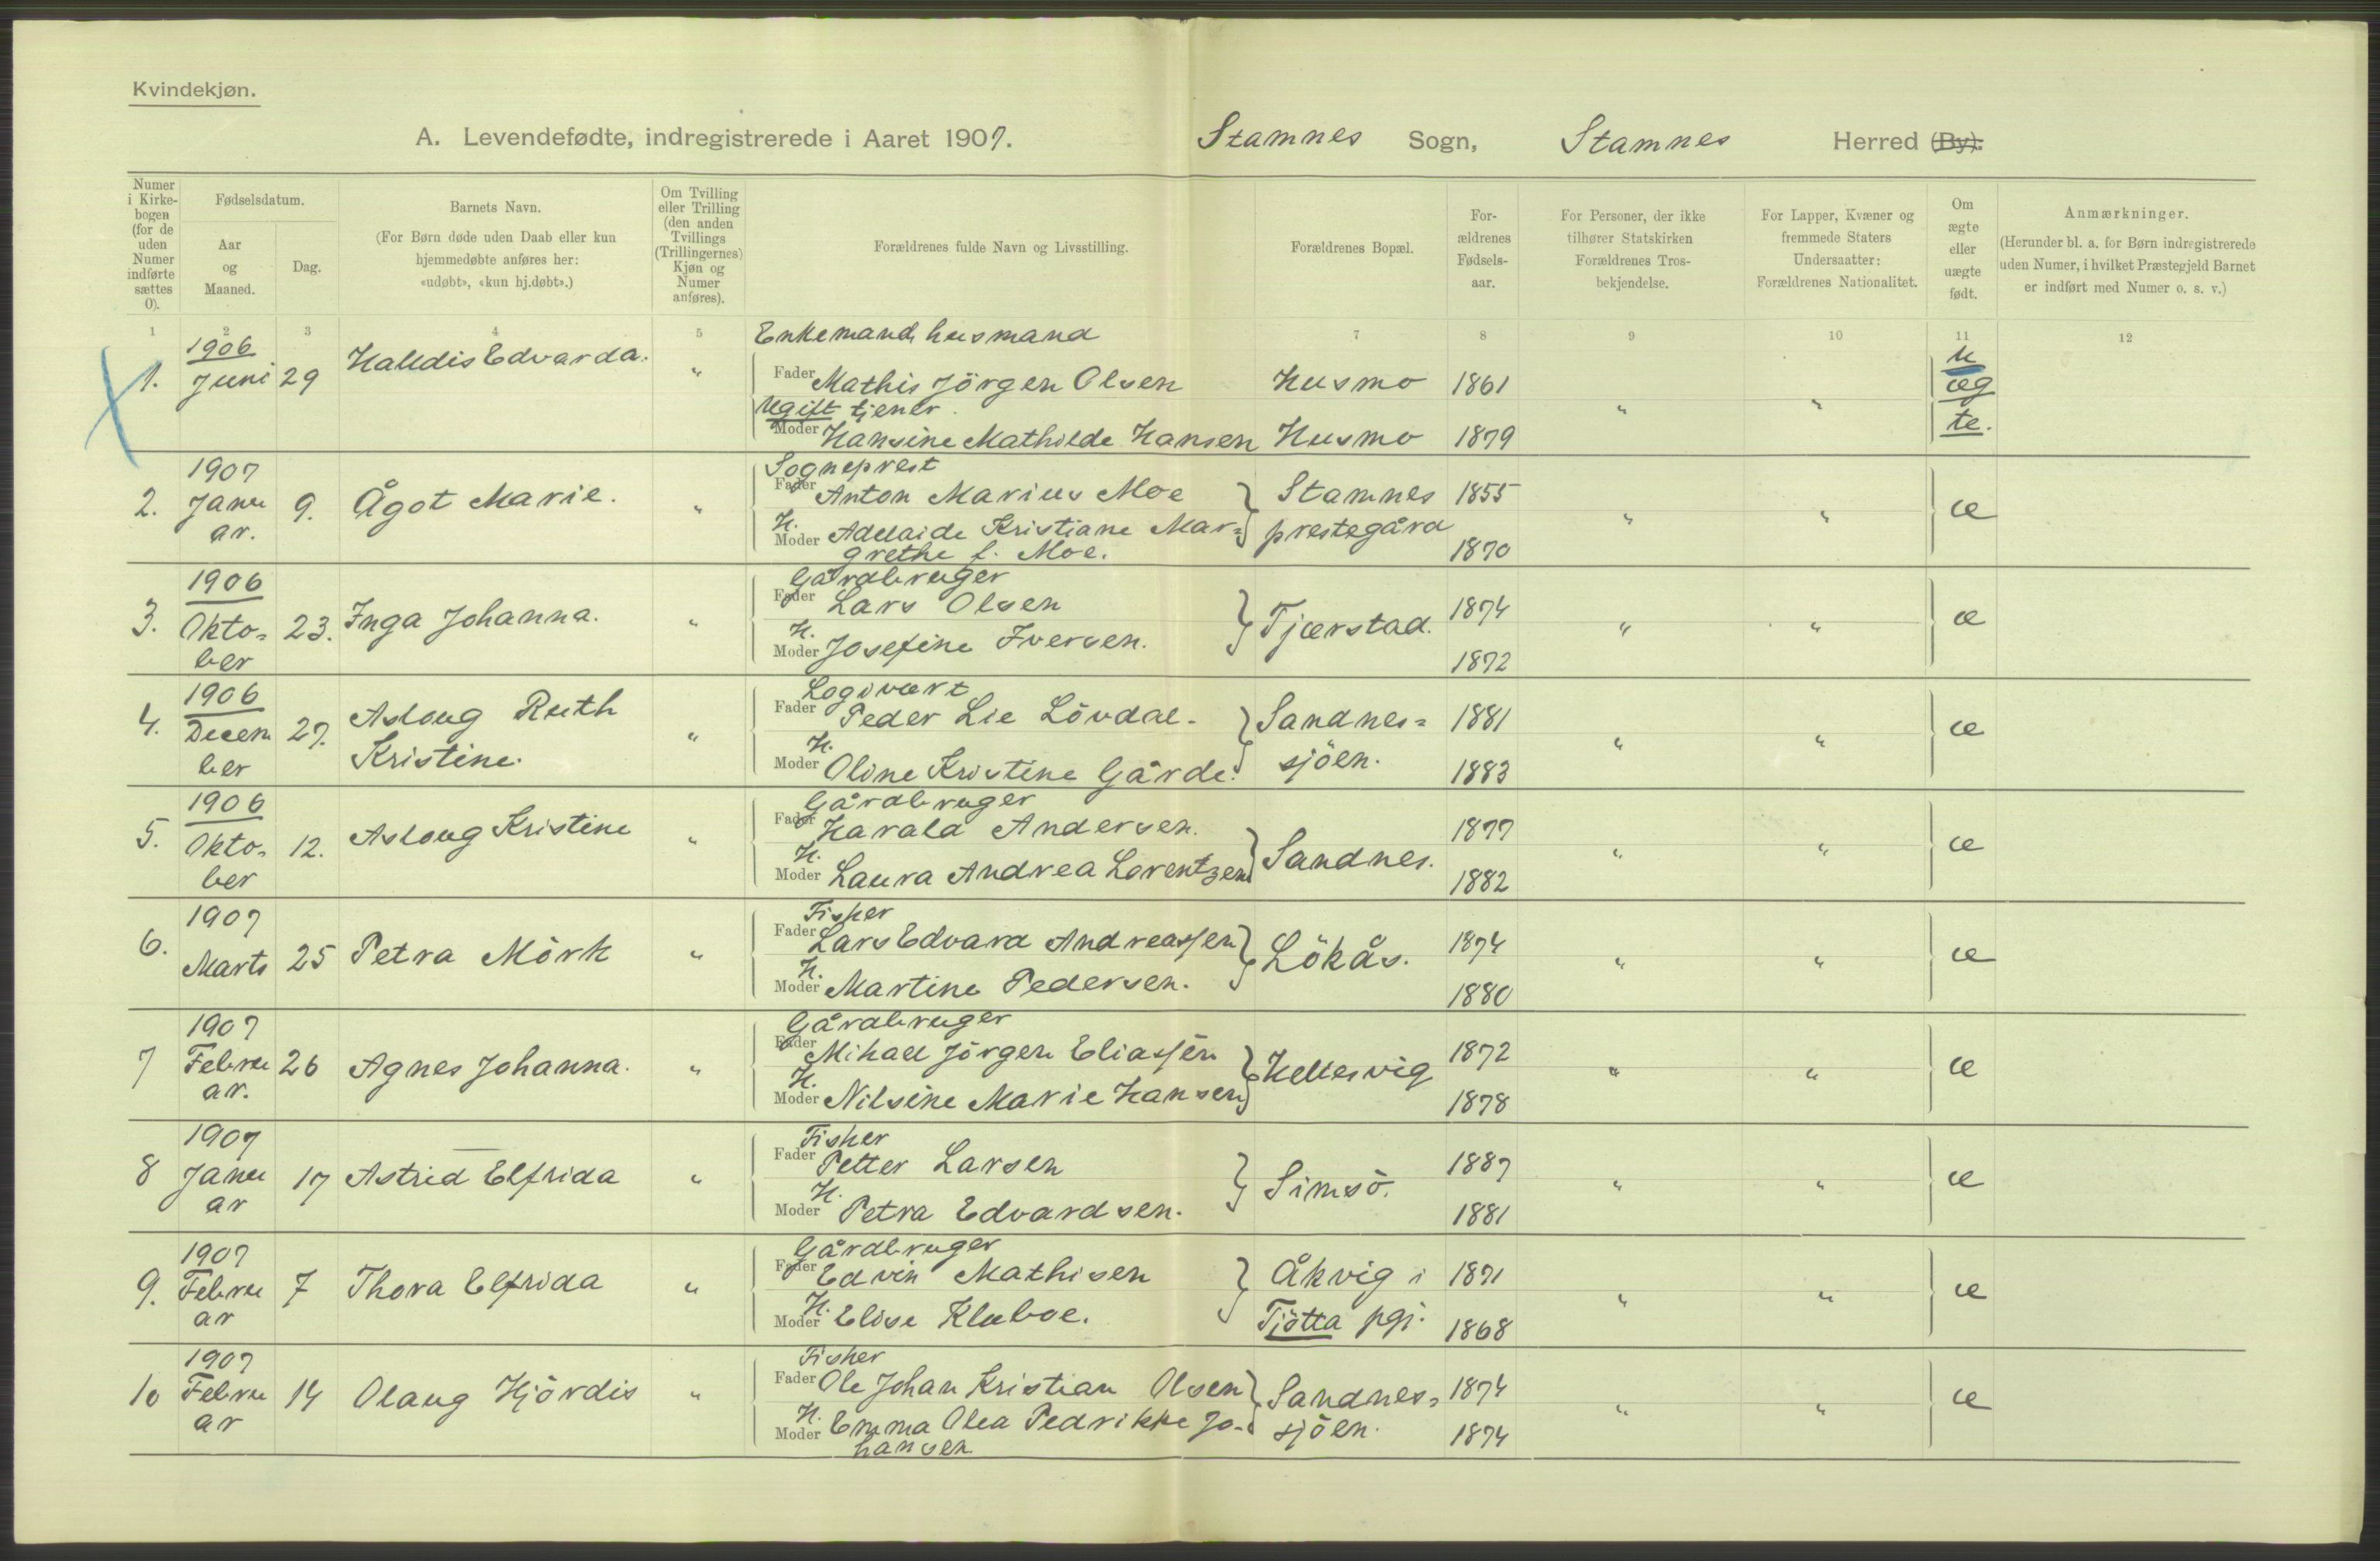 Kvindekjøn.
A. Levendefødte, indregistrerede i Aaret 1907. Stamnes Sogn, Stamnes Herred (By).
Numer i Kirkebogen (for de uden Numer indførte sættes 0).
Fødselsdatum.
Aar og Maaned.
Dag.
Barnets Navn.
(For Børn døde uden Daab eller kun hjemmedøbte anføres her: «udøbt», «kun hj.døbt».)
Om Tvilling eller Trilling (den anden Tvillings (Trillingernes) Kjøn og Numer anføres).
Forældrenes fulde Navn og Livsstilling.
Forældrenes Bopæl.
Forældrenes Fødselsaar.
For Personer, der ikke tilhører Statskirken Forældrenes Trosbekjendelse.
For Lapper, Kvæner og fremmede Staters Undersaatter: Forældrenes Nationalitet.
Om ægte eller uægte født.
Anmærkninger.
(Herunder bl. a. for Børn indregistrerede uden Numer, i hvilket Præstegjeld Barnet er indført med Numer o. s. v.)
1 2 3 4 5 7 8 9 10 11 12
Enkemand, husmand
1. 1906 Juni 29 Halldis Edvarda. " Fader Mathis Jörgen Olsen Husmo 1861 " " uægte.
Ugift tjener.
Moder Hansine Mathilde Hansen Husmo 1879
Sogneprest
2. 1907 Januar. 9. Ågot Marie. " Fader Anton Marius Moe Stamnes prestegård 1855 " " æ
H. Moder Adelaide Kristiane Margrethe f. Moe. 1870
Gårdbruger
3. 1906 Oktober 23. Inga Johanna. " Fader Lars Olsen Tjærstad. 1874 " " æ
H. Moder Josefine Iversen. 1872
Logivært
4. 1906 December 27. Aslaug Ruth Kristine. " Fader Peder Lie Lövdal. Sandnessjöen. 1881 " " æ
H. Moder Oline Kristine Gårde. 1883
Gårdbruger
5. 1906 Oktober 12. Aslaug Kristine " Fader Harald Andersen. Sandnes. 1877 " " æ
H. Moder Laura Andrea Lorentzen 1882
Fisker
6. 1907 Marts 25 Petra Mörk " Fader Lars Edvard Andreassen Lökås. 1874 " " æ
H. Moder Martine Pedersen. 1880
Gårdbruger
7 1907 Februar. 26 Agnes Johanna. " Fader Mihall Jörgen Eliassen Hellesvig 1872 " " æ
H. Moder Nilsine Marie Hansen 1878
Fisker
8 1907 Januar 17 Astrid Elfrida " Fader Petter Larsen Simsö. 1887 " " æ
H. Moder Petra Edvardsen. 1881
Gårdbruger
9. 1907 Februar 7 Thora Elfrida " Fader Edvin Mathisen Åkvig i Tjötta pgj. 1871 " " æ
H. Moder Elise Kluboe. 1868
Fisker
10 1907 Februar 14 Olaug Hjördis " Fader Ole Johan Kristian Olsen Sandnessjöen. 1874 " " æ
H. Moder Emma Olea Pedrikke Johansen 1874